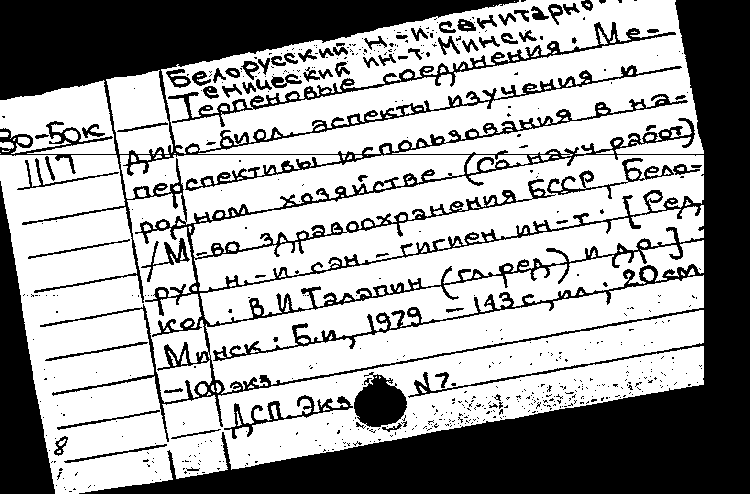 Белорусский н.-и. санитарно-
гигиенический ин-т. Минск.
Терпеновые соединения: Ме-
дико-биол. аспекты изучения и
перспективы использования в на-
родном хозяйстве. (Сб. науч. работ)
/ М-во здравоохранения БССР, Бело-
рус. н.-и. сан.-гигиен. ин-т; [Ред.
кол.: В.И.Талапин (гл. ред.) и др.]
Минск: Б.и., 1979. – 143 с., ил.; 20 см
–100 экз.
ДСП. Экз. N7.
80-50к
1117
8